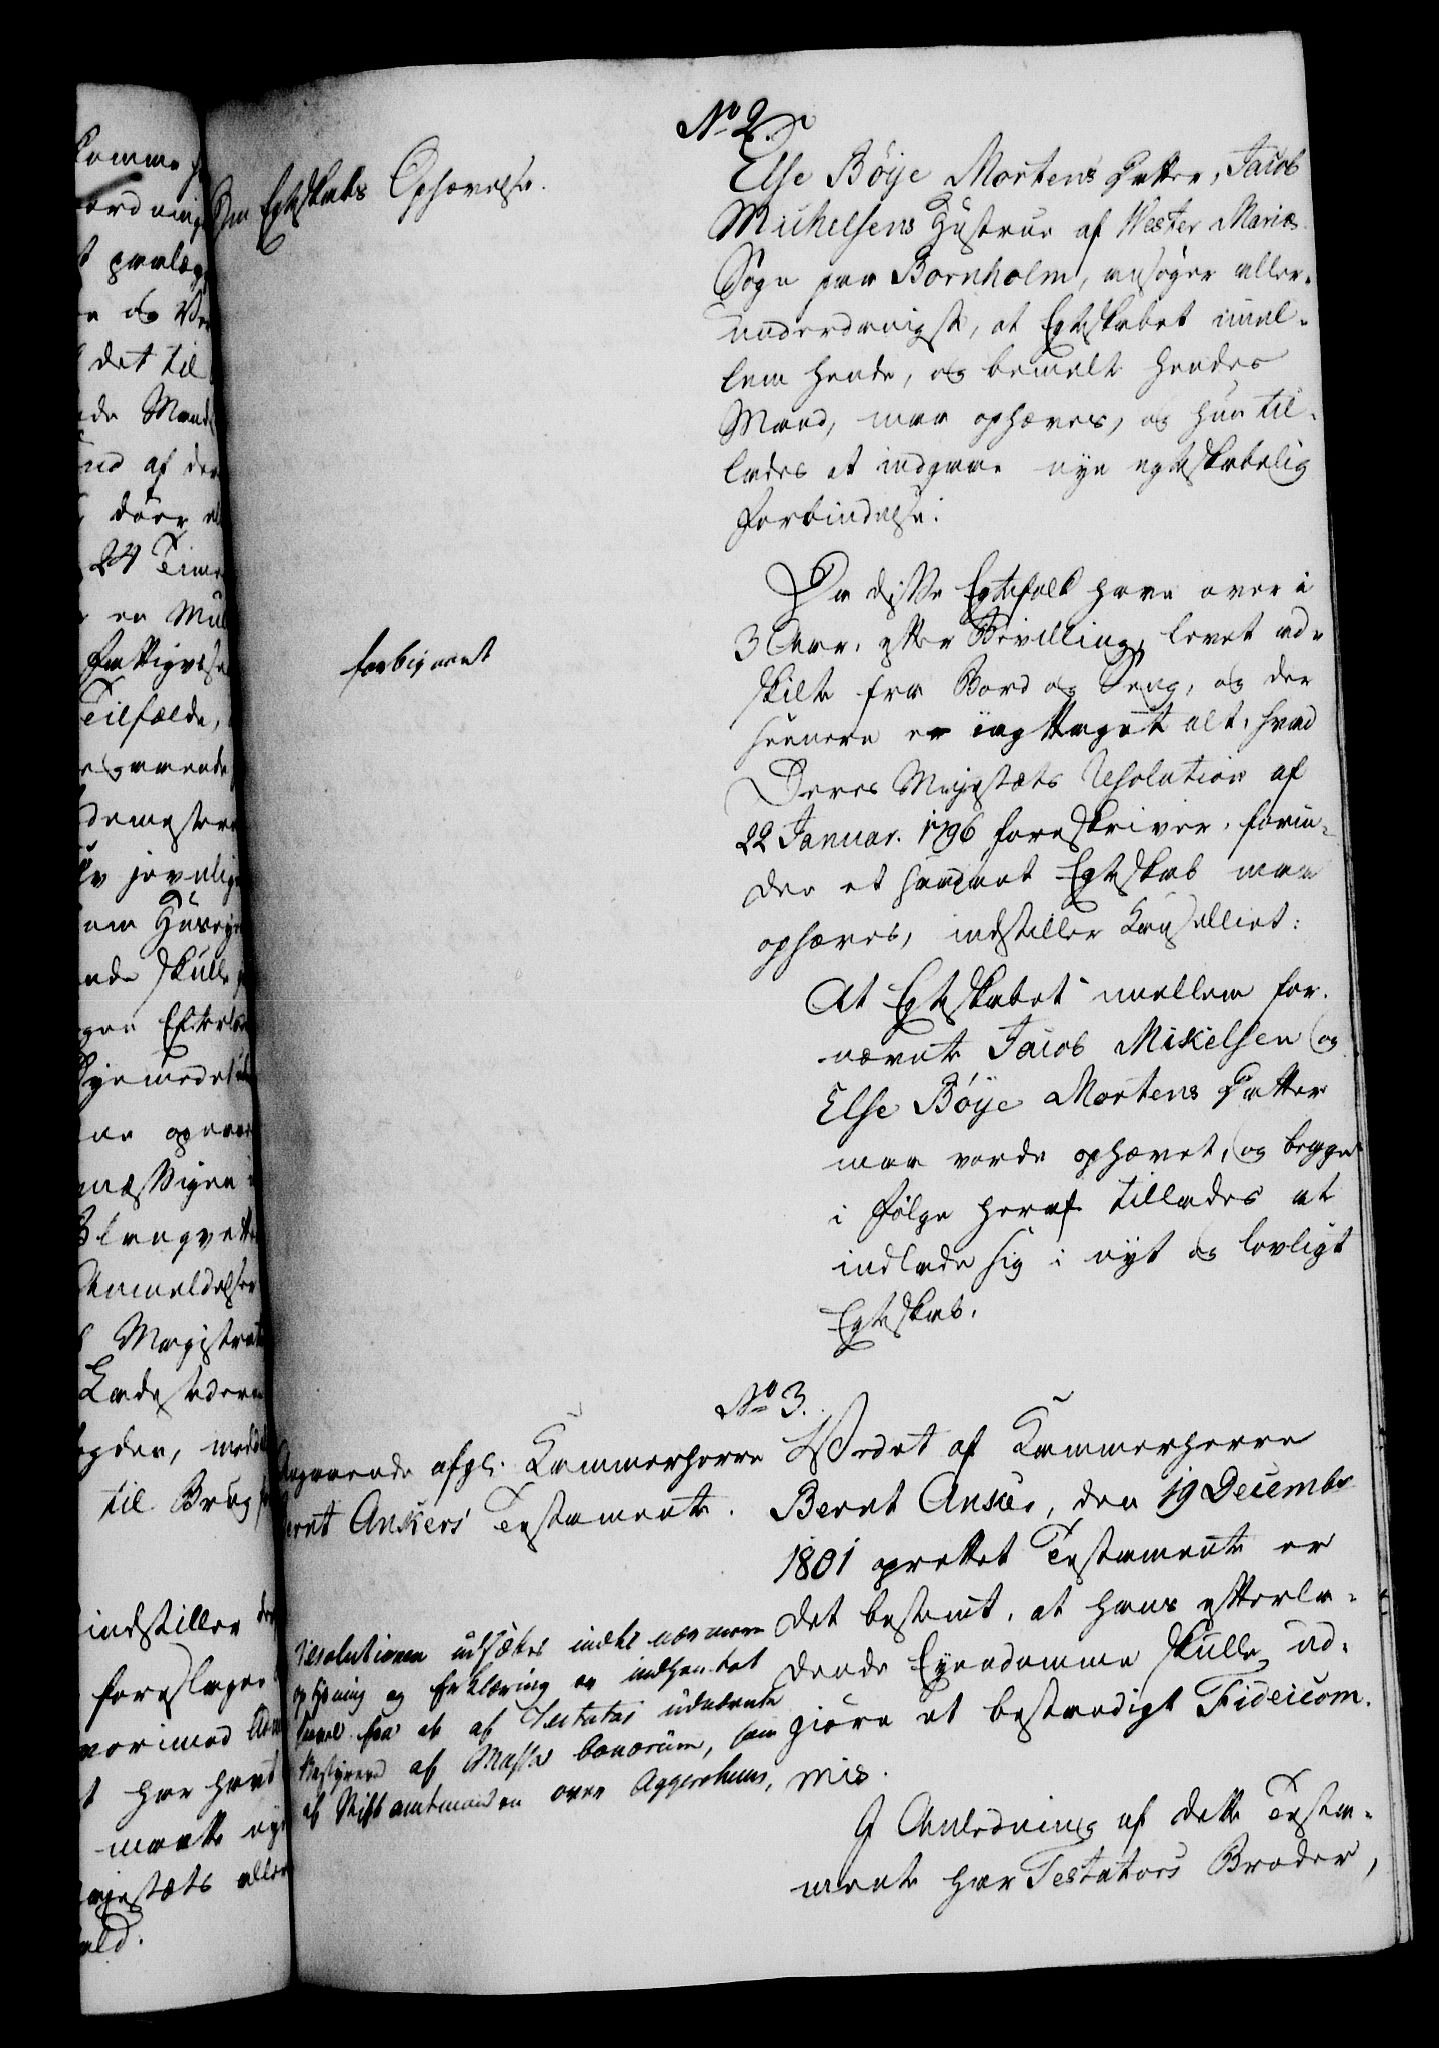 No 2.
Om Egteskabs Ophævelse.
Else Böÿe Mortens Datter, Jacob
Michelsens Hustrue af Vester Mariæ
Sogn paa Bornholm, ansøger aller-
underdanigst, at Egteskabet imel-
lem hende, og bemelte hendes
Mand, maa ophæves, og hun til-
lades at indgaae nye egteskabelig
Forbindelse.
forbigaaet
Da disse Egtefolk have over i
3 Aar, efter Bevilling, levet ad-
skilte fra Bord og Seng, og der
hernere er iagttaget alt, hvad
Deres Majestæts Resolution af
22 Januar. 1796 foreskriver, forin-
den et saadant Egteskab maa
ophæves, indstiller Cancelliet:
At Egteskabet mellem for-
nævnte Jacob Mikelsen og
Else Böÿe Mortens Datter
maa vorde ophævet, og begge
i Følge heraf tillades at
indlade sig i nyt og lovligt
Egteskab.
No 3.
Angaaende afgl. Kammerherre
Bernt Ankers Testamente.
Vedet af Kammerherre
Bernt Anker, den 19 Decembr
1801 oprettet Testamente er
det bestemt, at hans efterla-
dende Eyendomme skulle ud-
giøre et bestandigt Fideicom-
mis.
Resolutionen udsættes indtil nærmere
oplysning og Erklæring er indhentet
saavel fra de af Testator udnævnte
Bestyrere af Massa bonorum, som
af Stiftamtmanden over Aggershuus,
I Anledning af dette Testa-
mente har Testators Broder,